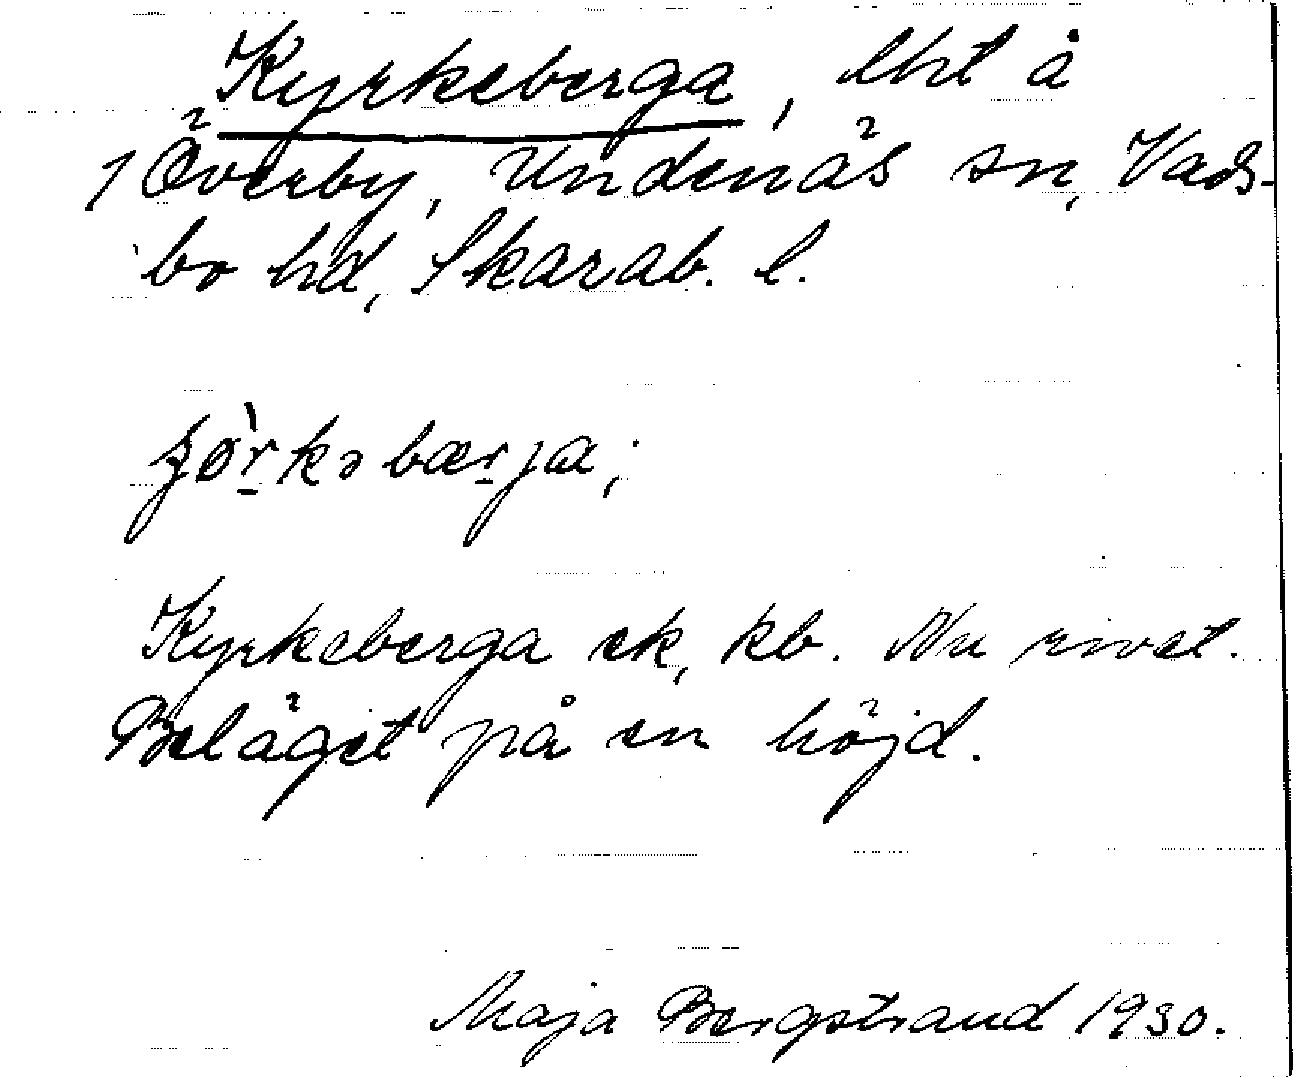 Kyrkeberga, lht å
1 Överby, Undenäs sn, Vads-
bo hd, Skarab. l.
Kyrkeberga ek, kb. Nu rivet.
Beläget på en höjd.
Maja Bergstrand 1930.